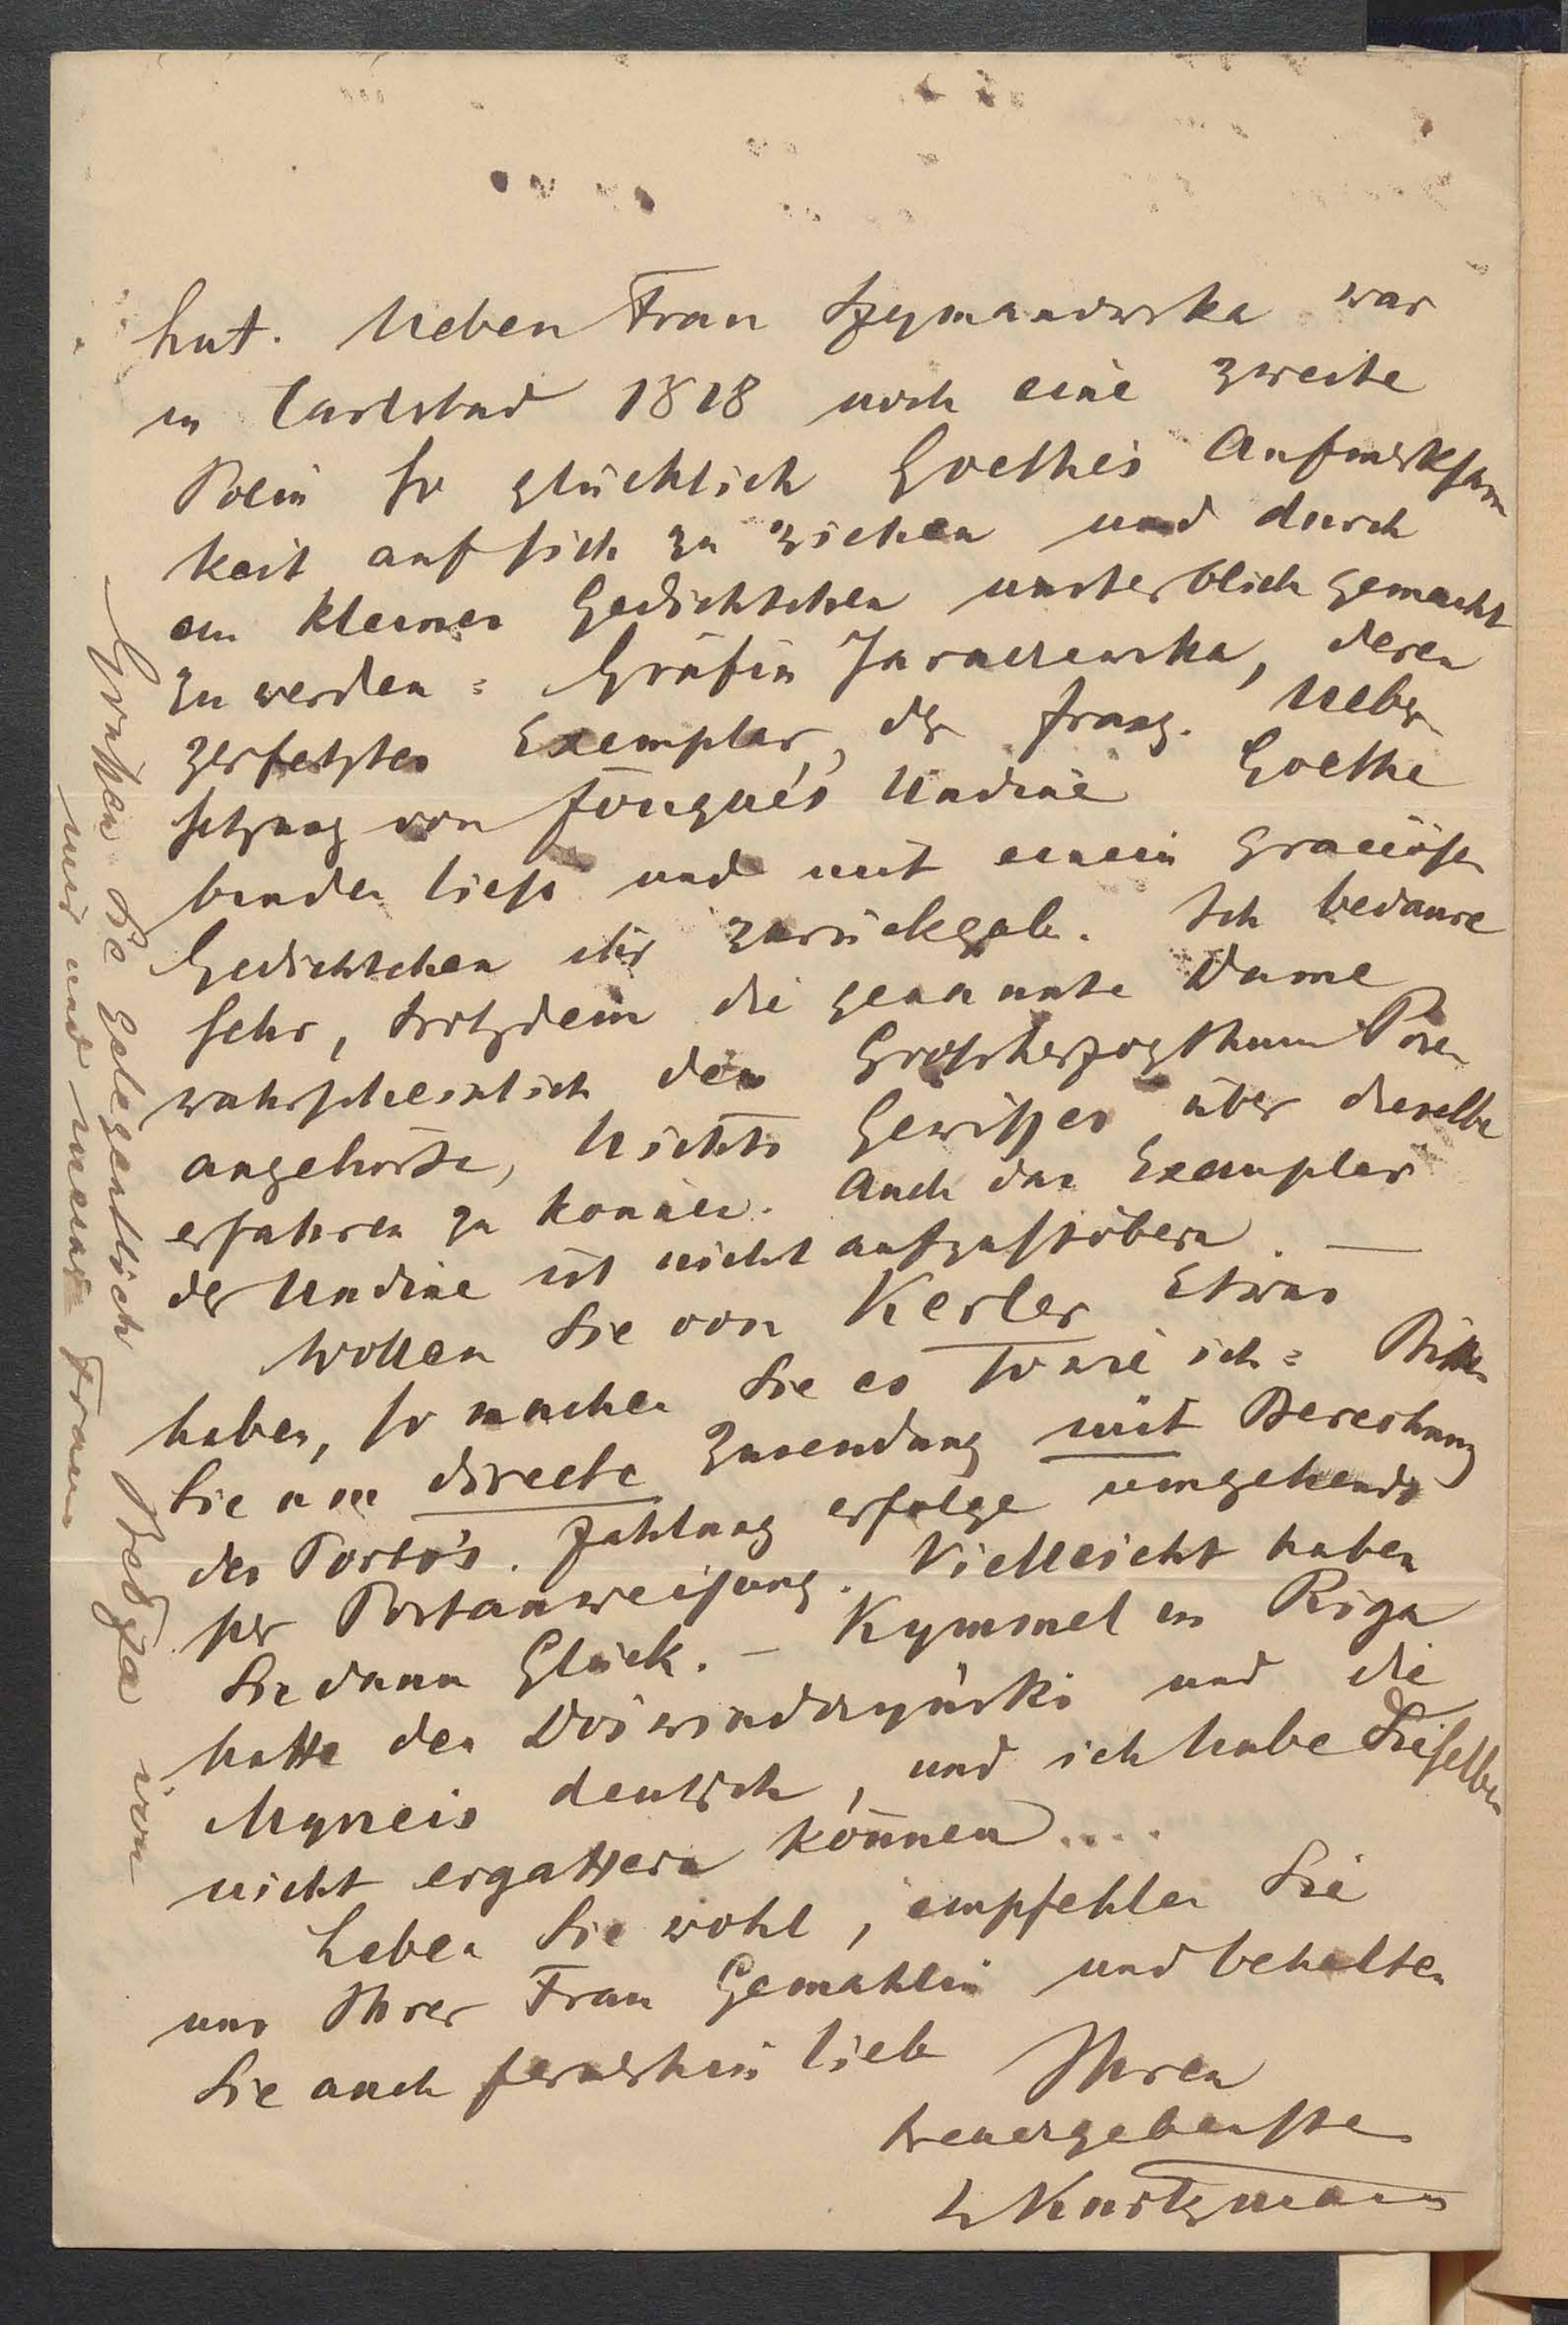 hat. Neben Frau Szymanowska war
in Carlsbad 1818 noch eine zweite
Polin so glücklich Goethes Aufmerksam
keit auf sich zu ziehen und durch
ein kleines Gedichtchen unsterblich gemacht
zu werden: Gräfin Jaraczewska, deren
zerfetztes Exemplar der franz. Ueber
setzung von Fouqué's Undine Goethe
binden liess und mit einem graciösen
Gedichtchen ihr zurückgab. Ich bedaure
sehr, trotzdem die genannte Dame
wahrscheinlich dem Grossherzogthum Posen
angehörte, Nichts Gewisses über dieselbe
erfahren zu können. Auch das Exemplar
der Undine ist nicht aufzustöbern. —
Wollen Sie von Kerler Etwas
haben, so machen Sie es so wie ich: Bitten
Sie um directe Zusendung mit Berechnung
des Porto's. Zahlung erfolge umgehends
per Postanweisung. Vielleicht haben
Sie dann Glück. – Kymmel in Riga
hatte den Doświadczyński und die
Myneis deutsch, und ich habe Dieselben
nicht ergattern können....
Leben Sie wohl, empfehlen Sie
uns Ihrer Frau Gemahlin und behalten
Sie auch fernerhin lieb
Ihren
treuergebensten
L Kurtzmann
Grüßen Sie gelegentlich Bełza von
mir und meiner Frau